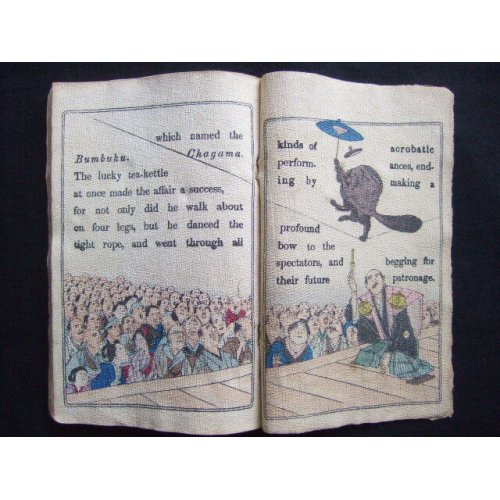 which named the
Bumbuku. Chagama.
The lucky tea-kettle
at once made the affair a success,
for not only did he walk about
on four legs, but he danced the
tight rope, and went through all
kinds of acrobatic
perform- ances, end-
ing by making a
profound
bow to the
spectators, and begging for
their future patronage.